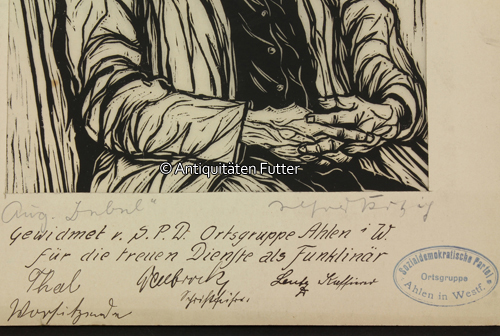 © Antiquitäten Futter
"Aug. Bebel"
Gewidmet v. S.P.D. Ortsgruppe Ahlen i/W.
für die treuen Dienste als Funktinär
Thal
Vorsitzende
Schriftführer
Sozialdemokratische Partei
Ortsgruppe
Ahlen in Westf.